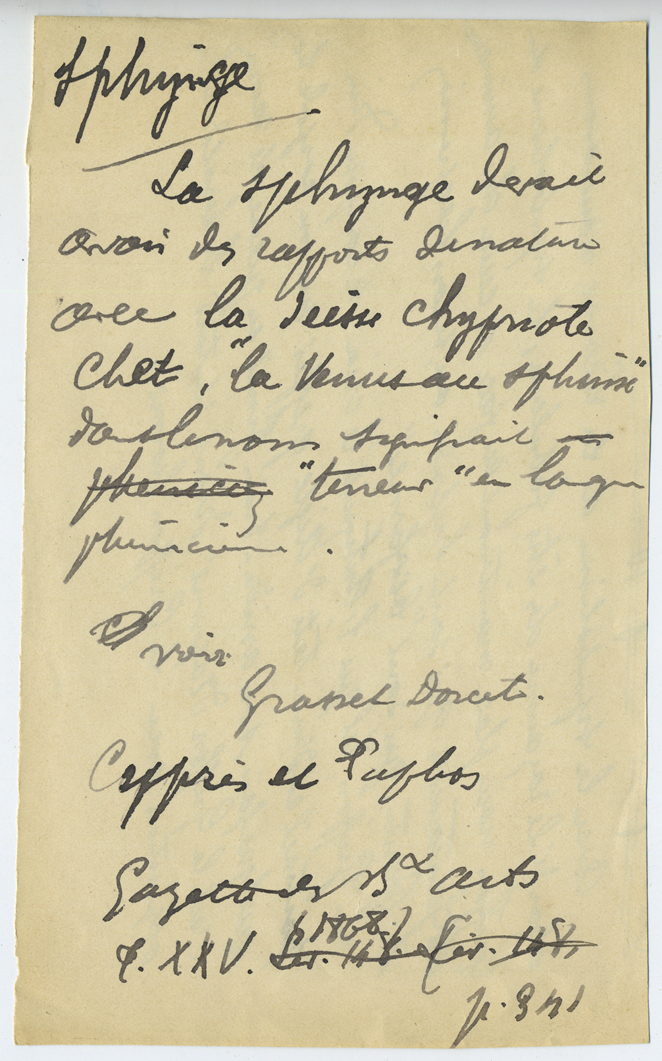 Sphynge
La sphynge devait
avoir des rapports de nature
avec la déesse chypriote
Chet, "la Venus au sphinx"
dont le nom signifiait
phenicien "terreur" en langue
phénicienne.
voir
Grasset Dorcet.
Cypprès et Paphos
Gazette des Bx arts
(1868.)
T. XXV.
p. 341